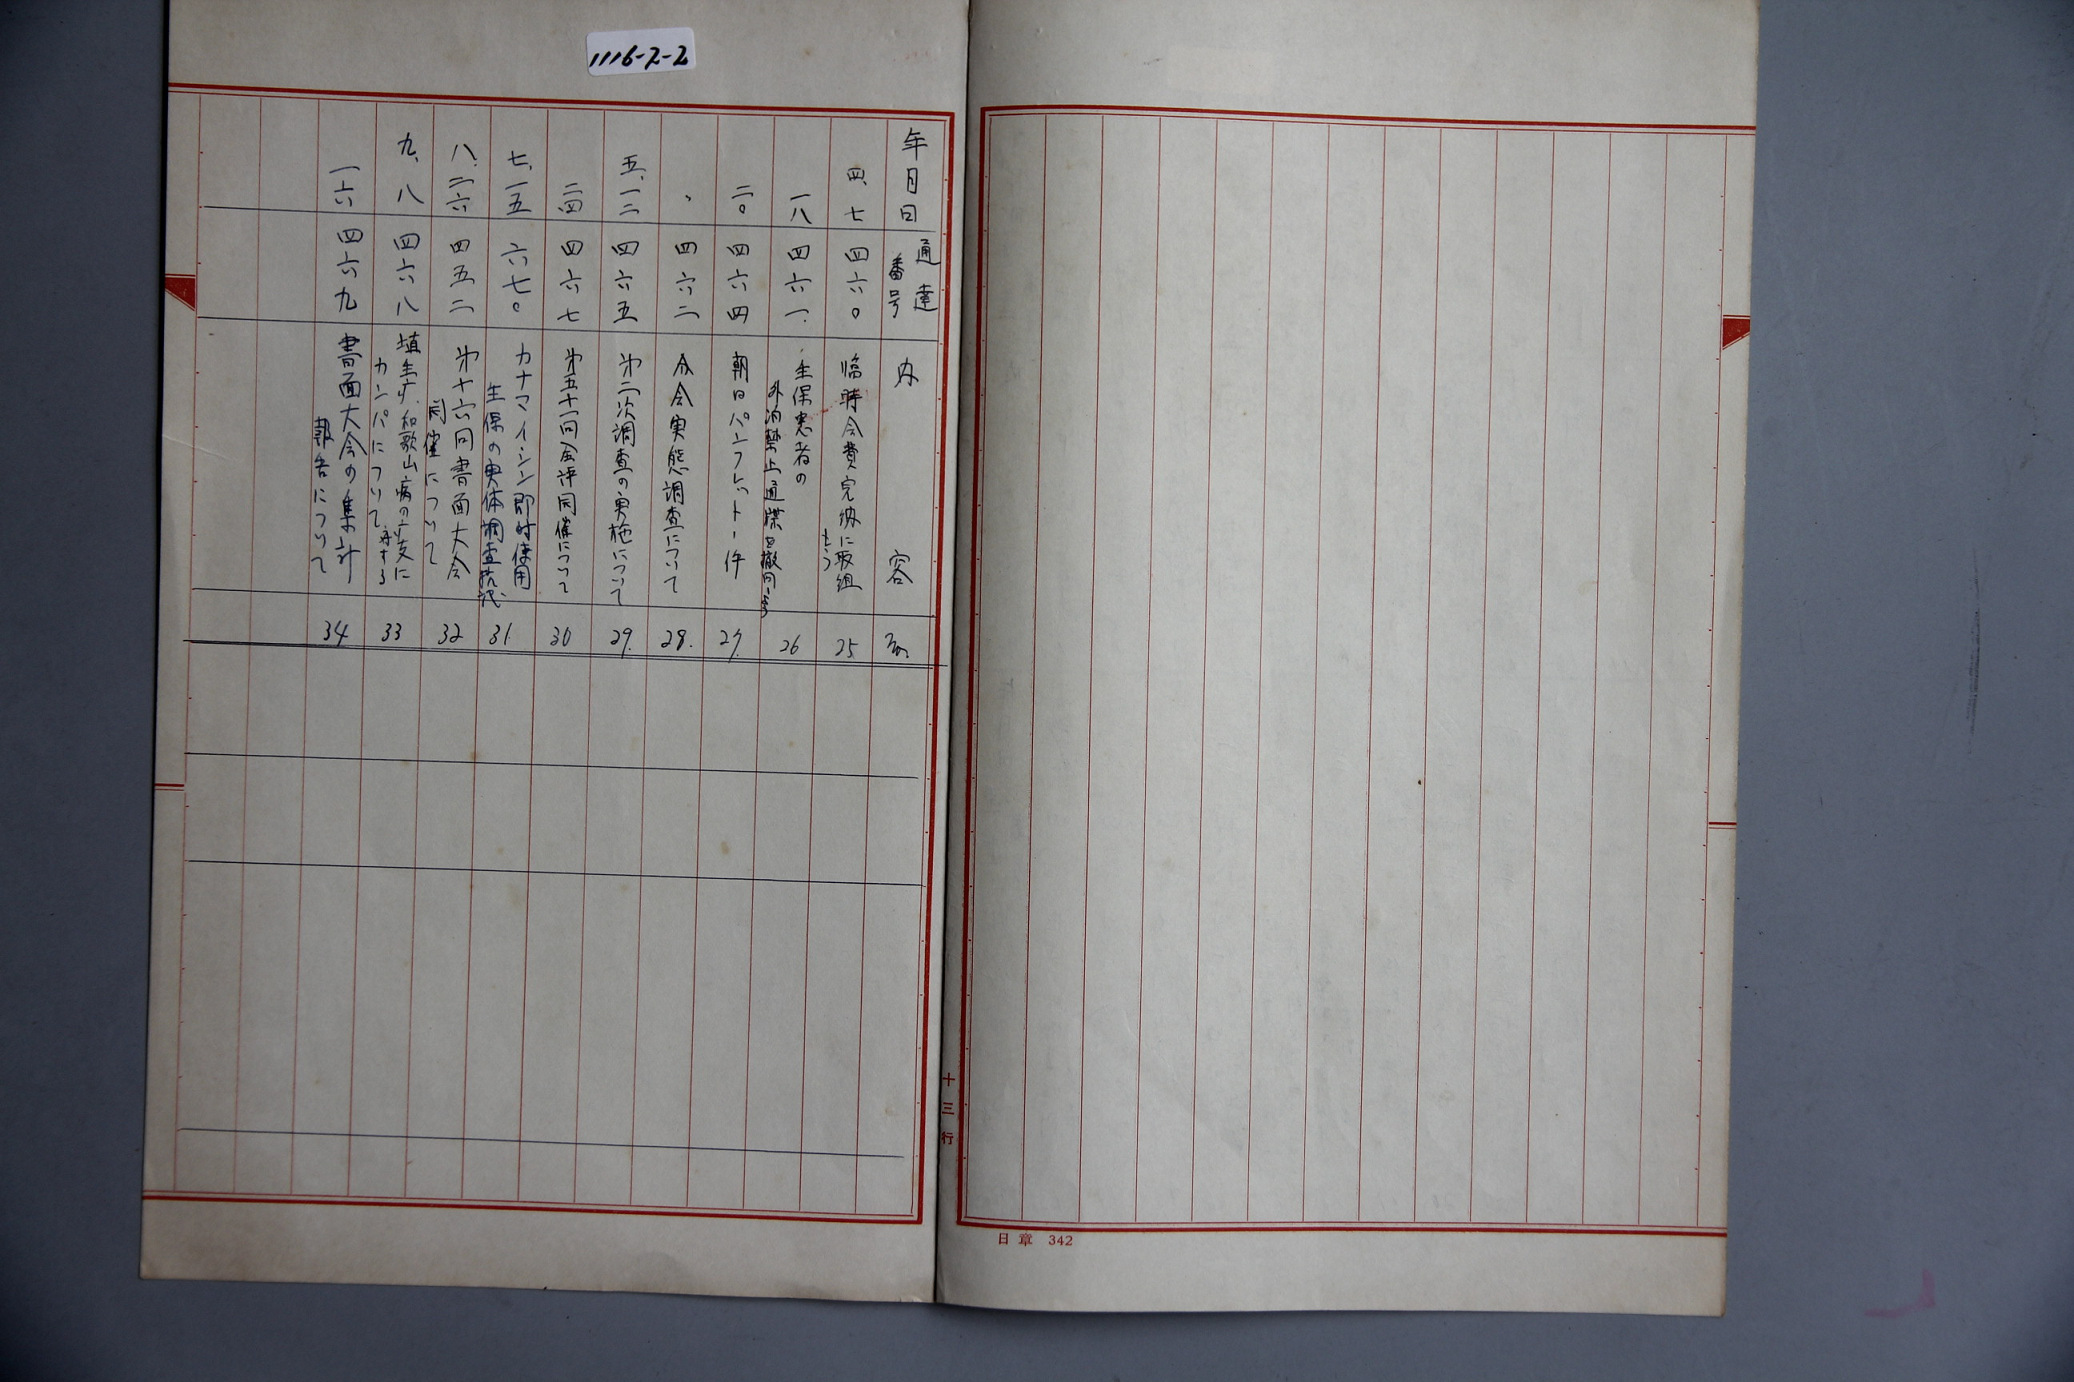 1116-2-2
年月日
通達
番号
内容
No.
四、七
四六〇
臨時会費完納に取組
もう
25
一八
四六一
生保患者の
外泊禁止通牒を撤回しよう
26
二〇
四六四
朝日パンフレット件
27
〃
四六二
分会実態調査について
28
五、一二
四六五
第二次調査の実施について
29
二四
四六七
第五十一回全評開催について
30
七、一五
六七〇
カナマイシン即時使用
生保の実体調査
31
八、二六
四五二
第十六回書面大会
開催について
32
九、八
四六八
埴生 和歌山病の支に
カンパについて
33
一六
四六九
書面大会の集計
報告について
34
十三行
日章 342